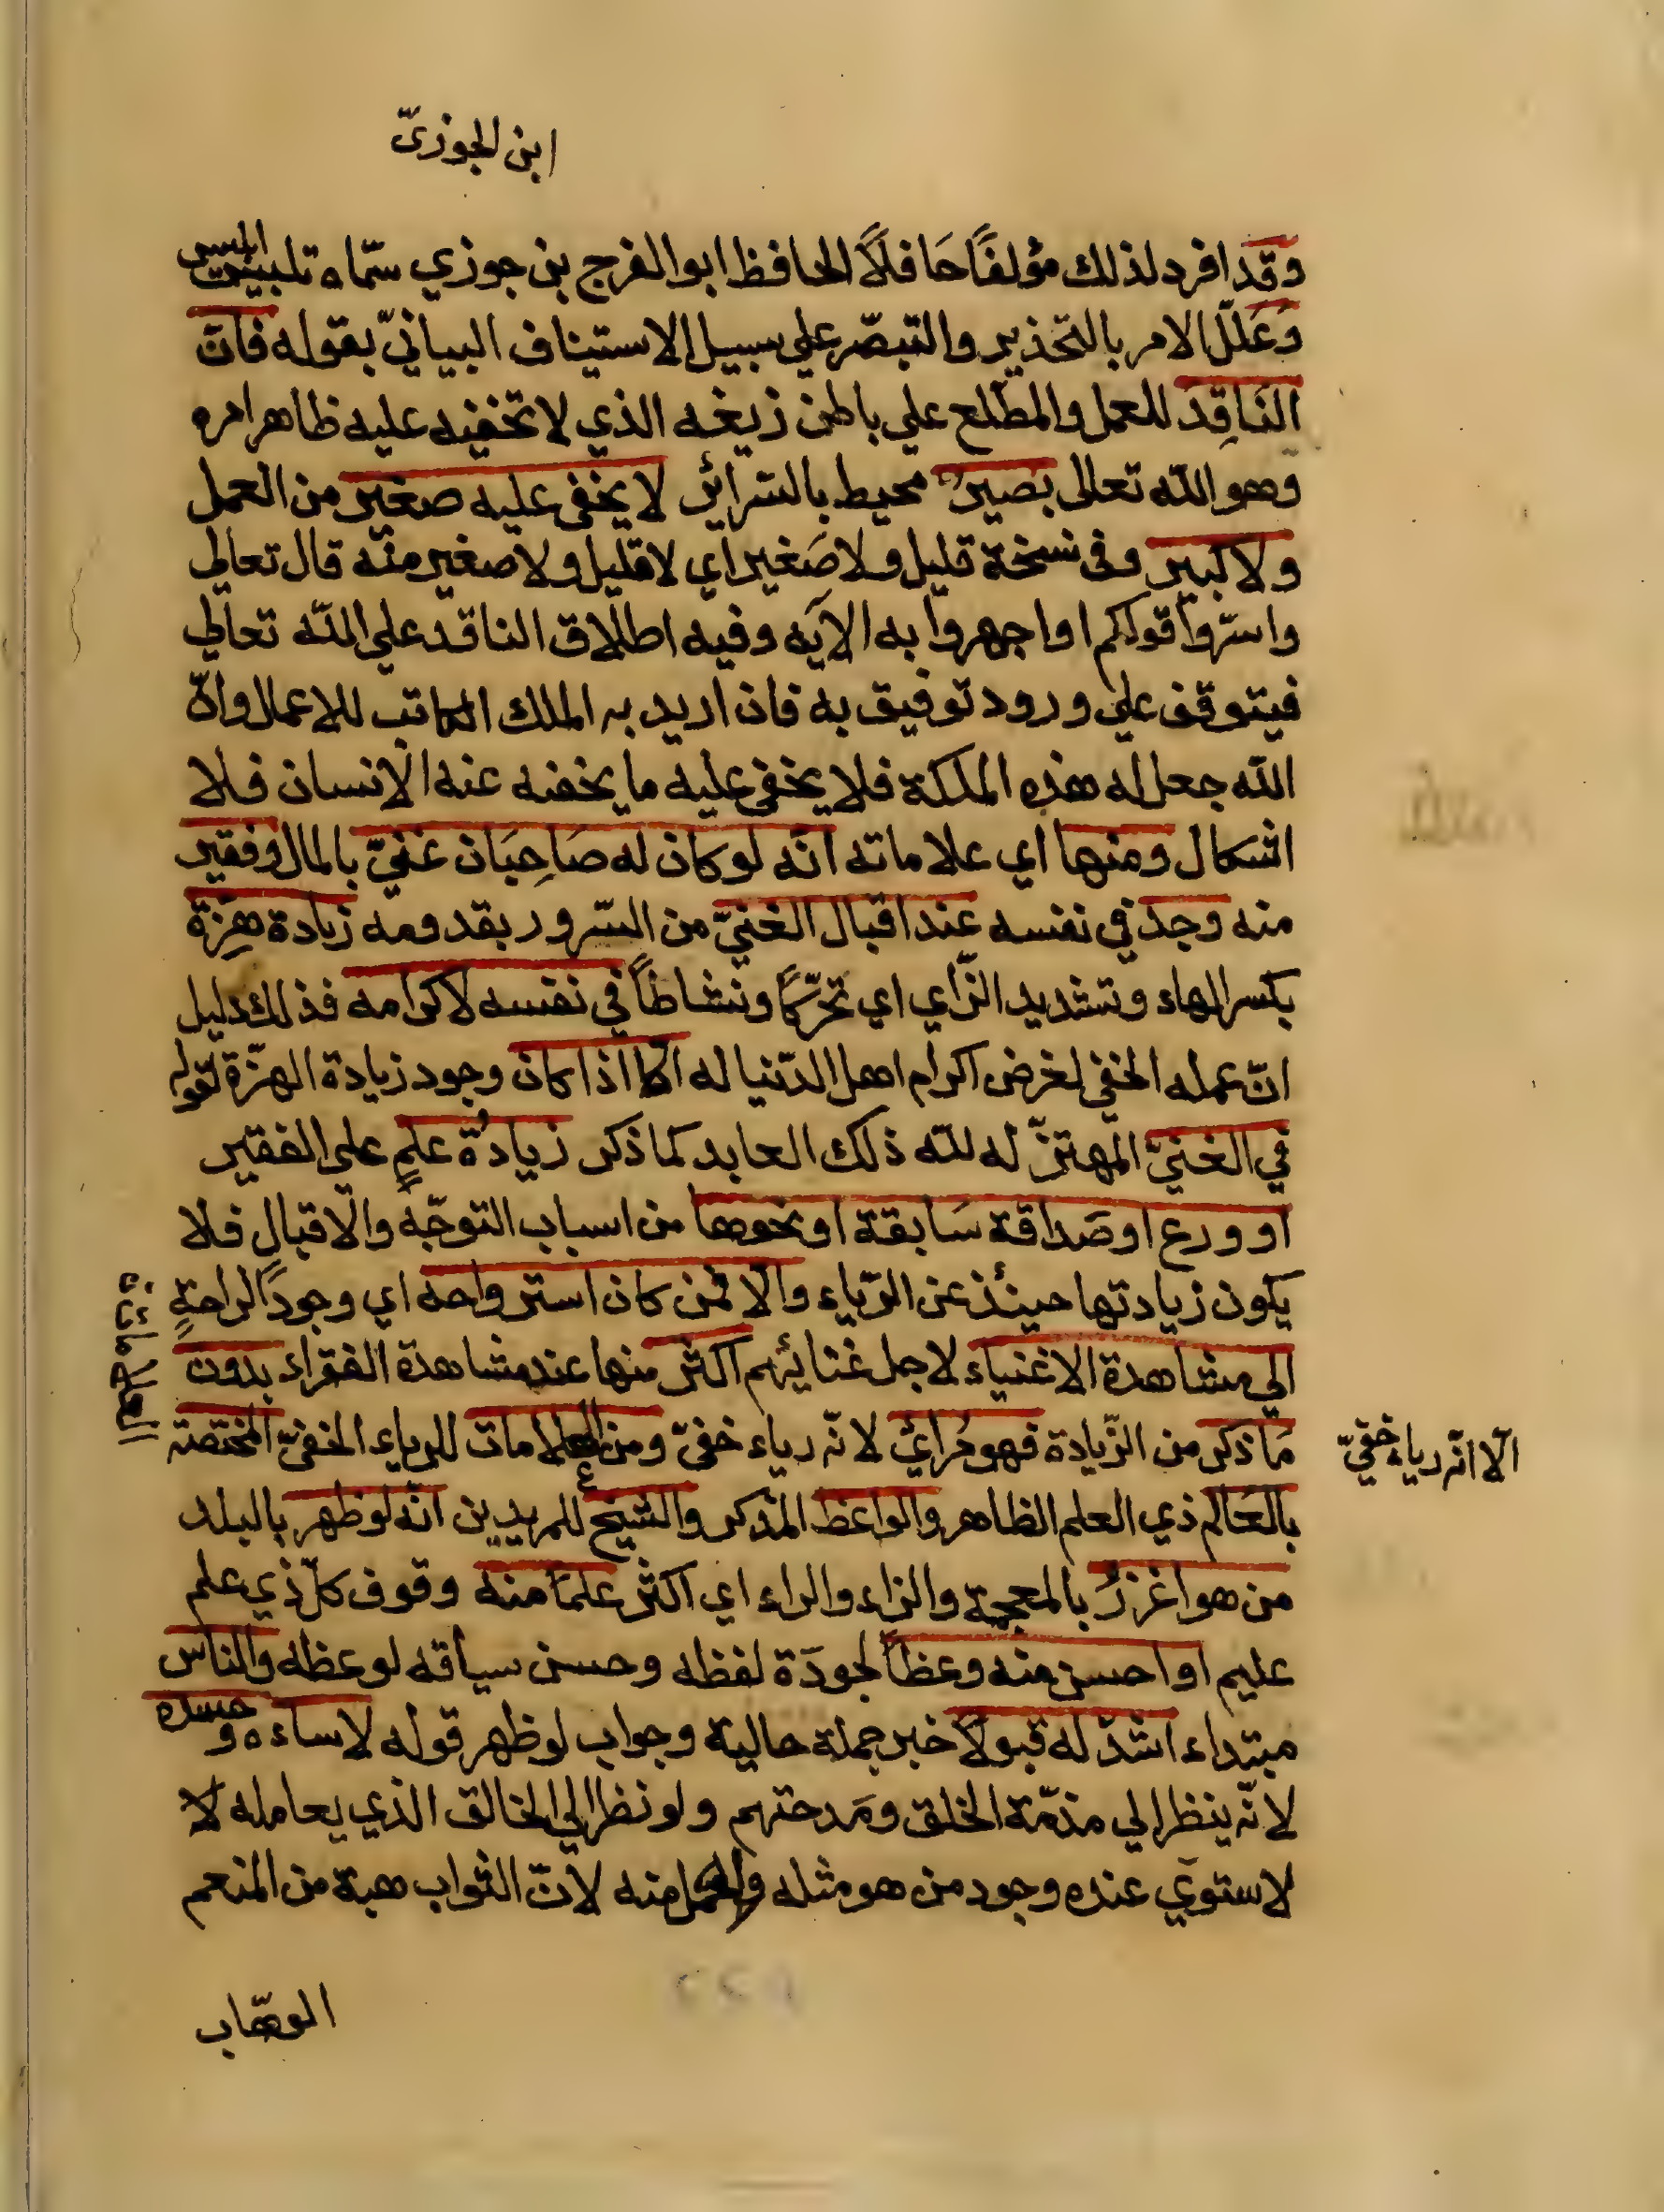 ابن الجوزىّ
وقد افرد لذلك مؤلفًا حَافلًا الحافظ ابو الفرج بن جوزي سمّاه تلبيس ابليس
وَعَلّل الامر بالتحذير والتبصّر علي سبيل الاستيناف البيانيّ بقوله فانّ
النَاقِدَ للعمل والمطلع علي باطن زيغه الذي لا تخفيه عليه ظاهر امره
وهو الله تعالى بَصيرٌ محيط بالسّرائر لا يخفى عليه صغير من العمل
ولا كبير وفى نسخة قليل ولا صَغير اي لا قليل ولا صغير منّه قال تعالي
واسرّوا قولكم او اجهروا به الآيه وفيه اطلاق الناقد علي الله تعالي
فيتوقف علي ورود توفيق به فان اريد به الملك الكاتب للاعمال وانّ
الله جعل له هذه الملكة فلا يخفى عليه ما يخفه عنه الانسان فلا
اشكال ومنها اي علاماته انّه لو كان له صَاحِبَان غنيّ بالمال وفقير
منه وجد في نفسه عند اقبال الغنيّ من السّرور بقدومه زيادة هِزّة
بكسر الهاء وتشديد الزّاي اي تحرّكًا ونشاطًا في نفسه لاكرامه فذلك دليل
انّ عمله الخفي لغرض اكرام اهل الدّنيا له الّا اذا كان وجود زيادة الهزّة لقوله
في الغنيّ المهتزّ له لله ذلك العابد كما ذكر زيادُة علمٍ علي الفقير
او ورع او صَداقة سَابقة او نحوها من اسباب التوجّه والاقبال فلا
يكون زيادتها حينئذ عن الرّياء والّا فمن كان استرواحه اي وجود الراحةِ
الي مشاهدة الاغنياء لاجل غنائهم اكثر منها عند مشاهدة الفقراء بدون
مَا ذكر من الزّيادة فهو مُرائي لانّه رياء خفيّ ومن العلامات للرياء الخفيّ المختصّة
الّا انّه رياء خفيّ
بالعَالم ذي العلم الظاهر والواعظ المذكر والشيخ للمريدين انّه لو ظهر بالبلد
من هو اغزرُ بالمعجمة والزاء والراء اي اكثر علمًا منه وفوف كلّ ذي علم
عليم او احسن منه وعظًا لجودَة لفظه وحسن سياقه لوعظه والناس
مبتداء اشدّ له قبولًا خبر جملة حالية وجواب لو ظهر قوله لاساءه وحسده
لانّه ينظر الي مذمّة الخلق ومَدحتهم ولو نظر الي الخالق الذي يعامله لا
لاستوي عنده وجود من هو مثله واكمل منه لانّ الثواب هبة من المنعم
الوهّاب